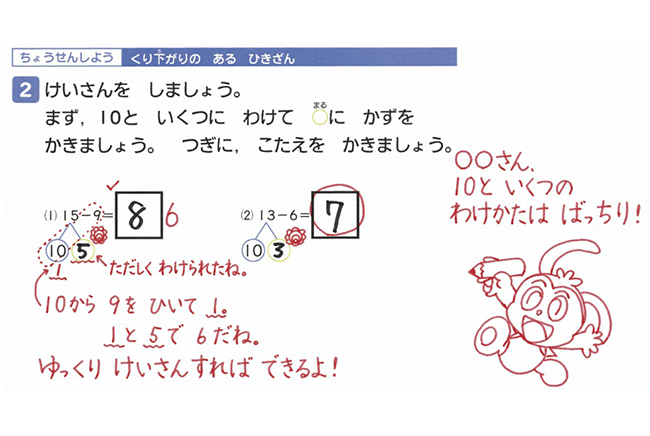 ちょうせんしよう くり下がりの ある ひきざん
2 けいさんを しましょう。
まず, 10と いくつに わけて ○に かずを
まる
かきましょう。 つぎに, こたえを かきましょう。
○○さん、
10と いくつの
わけかたは ばっちり!
(1) 15-9= 8 6
(2) 13-6= 7
10 5
10 3
1
ただしく わけられたね。
10から 9を ひいて 1。
1と 5で 6だね。
ゆっくり けいさんすれば できるよ!